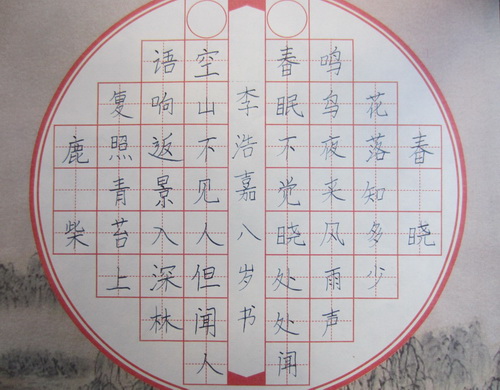 春晓
春眠不觉晓处处闻
鸣鸟夜来风雨声
花落知多少
李浩嘉八岁书
鹿柴
空山不见人但闻人
语响返景入深林
复照青苔上